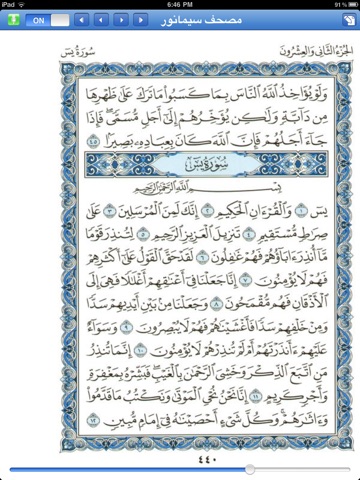 iPad 6:46 PM 91%
ON مصحف سيمانور
الجزء الثاني والعشرون سورة يس
وَلَوْ يُؤَاخِذُ ٱللَّهُ ٱلنَّاسَ بِمَا كَسَبُوا۟ مَا تَرَكَ عَلَىٰ ظَهْرِهَا
مِن دَآبَّةٍ وَلَٰكِن يُؤَخِّرُهُمْ إِلَىٰٓ أَجَلٍ مُّسَمًّى فَإِذَا
جَآءَ أَجَلُهُمْ فَإِنَّ ٱللَّهَ كَانَ بِعِبَادِهِۦ بَصِيرًۢا ٤٥
سورة يس
بِسْمِ ٱللَّهِ ٱلرَّحْمَٰنِ ٱلرَّحِيمِ
يسٓ ١ وَٱلْقُرْءَانِ ٱلْحَكِيمِ ٢ إِنَّكَ لَمِنَ ٱلْمُرْسَلِينَ ٣ عَلَىٰ
صِرَٰطٍ مُّسْتَقِيمٍ ٤ تَنزِيلَ ٱلْعَزِيزِ ٱلرَّحِيمِ ٥ لِتُنذِرَ قَوْمًا
مَّآ أُنذِرَ ءَابَآؤُهُمْ فَهُمْ غَٰفِلُونَ ٦ لَقَدْ حَقَّ ٱلْقَوْلُ عَلَىٰٓ أَكْثَرِهِمْ
فَهُمْ لَا يُؤْمِنُونَ ٧ إِنَّا جَعَلْنَا فِىٓ أَعْنَٰقِهِمْ أَغْلَٰلًا فَهِىَ إِلَى
ٱلْأَذْقَانِ فَهُم مُّقْمَحُونَ ٨ وَجَعَلْنَا مِنۢ بَيْنِ أَيْدِيهِمْ سَدًّا
وَمِنْ خَلْفِهِمْ سَدًّا فَأَغْشَيْنَٰهُمْ فَهُمْ لَا يُبْصِرُونَ ٩ وَسَوَآءٌ
عَلَيْهِمْ ءَأَنذَرْتَهُمْ أَمْ لَمْ تُنذِرْهُمْ لَا يُؤْمِنُونَ ١٠ إِنَّمَا تُنذِرُ
مَنِ ٱتَّبَعَ ٱلذِّكْرَ وَخَشِىَ ٱلرَّحْمَٰنَ بِٱلْغَيْبِ فَبَشِّرْهُ بِمَغْفِرَةٍ
وَأَجْرٍ كَرِيمٍ ١١ إِنَّا نَحْنُ نُحْىِ ٱلْمَوْتَىٰ وَنَكْتُبُ مَا قَدَّمُوا۟
وَءَاثَٰرَهُمْ وَكُلَّ شَىْءٍ أَحْصَيْنَٰهُ فِىٓ إِمَامٍ مُّبِينٍ ١٢
٤٤٠